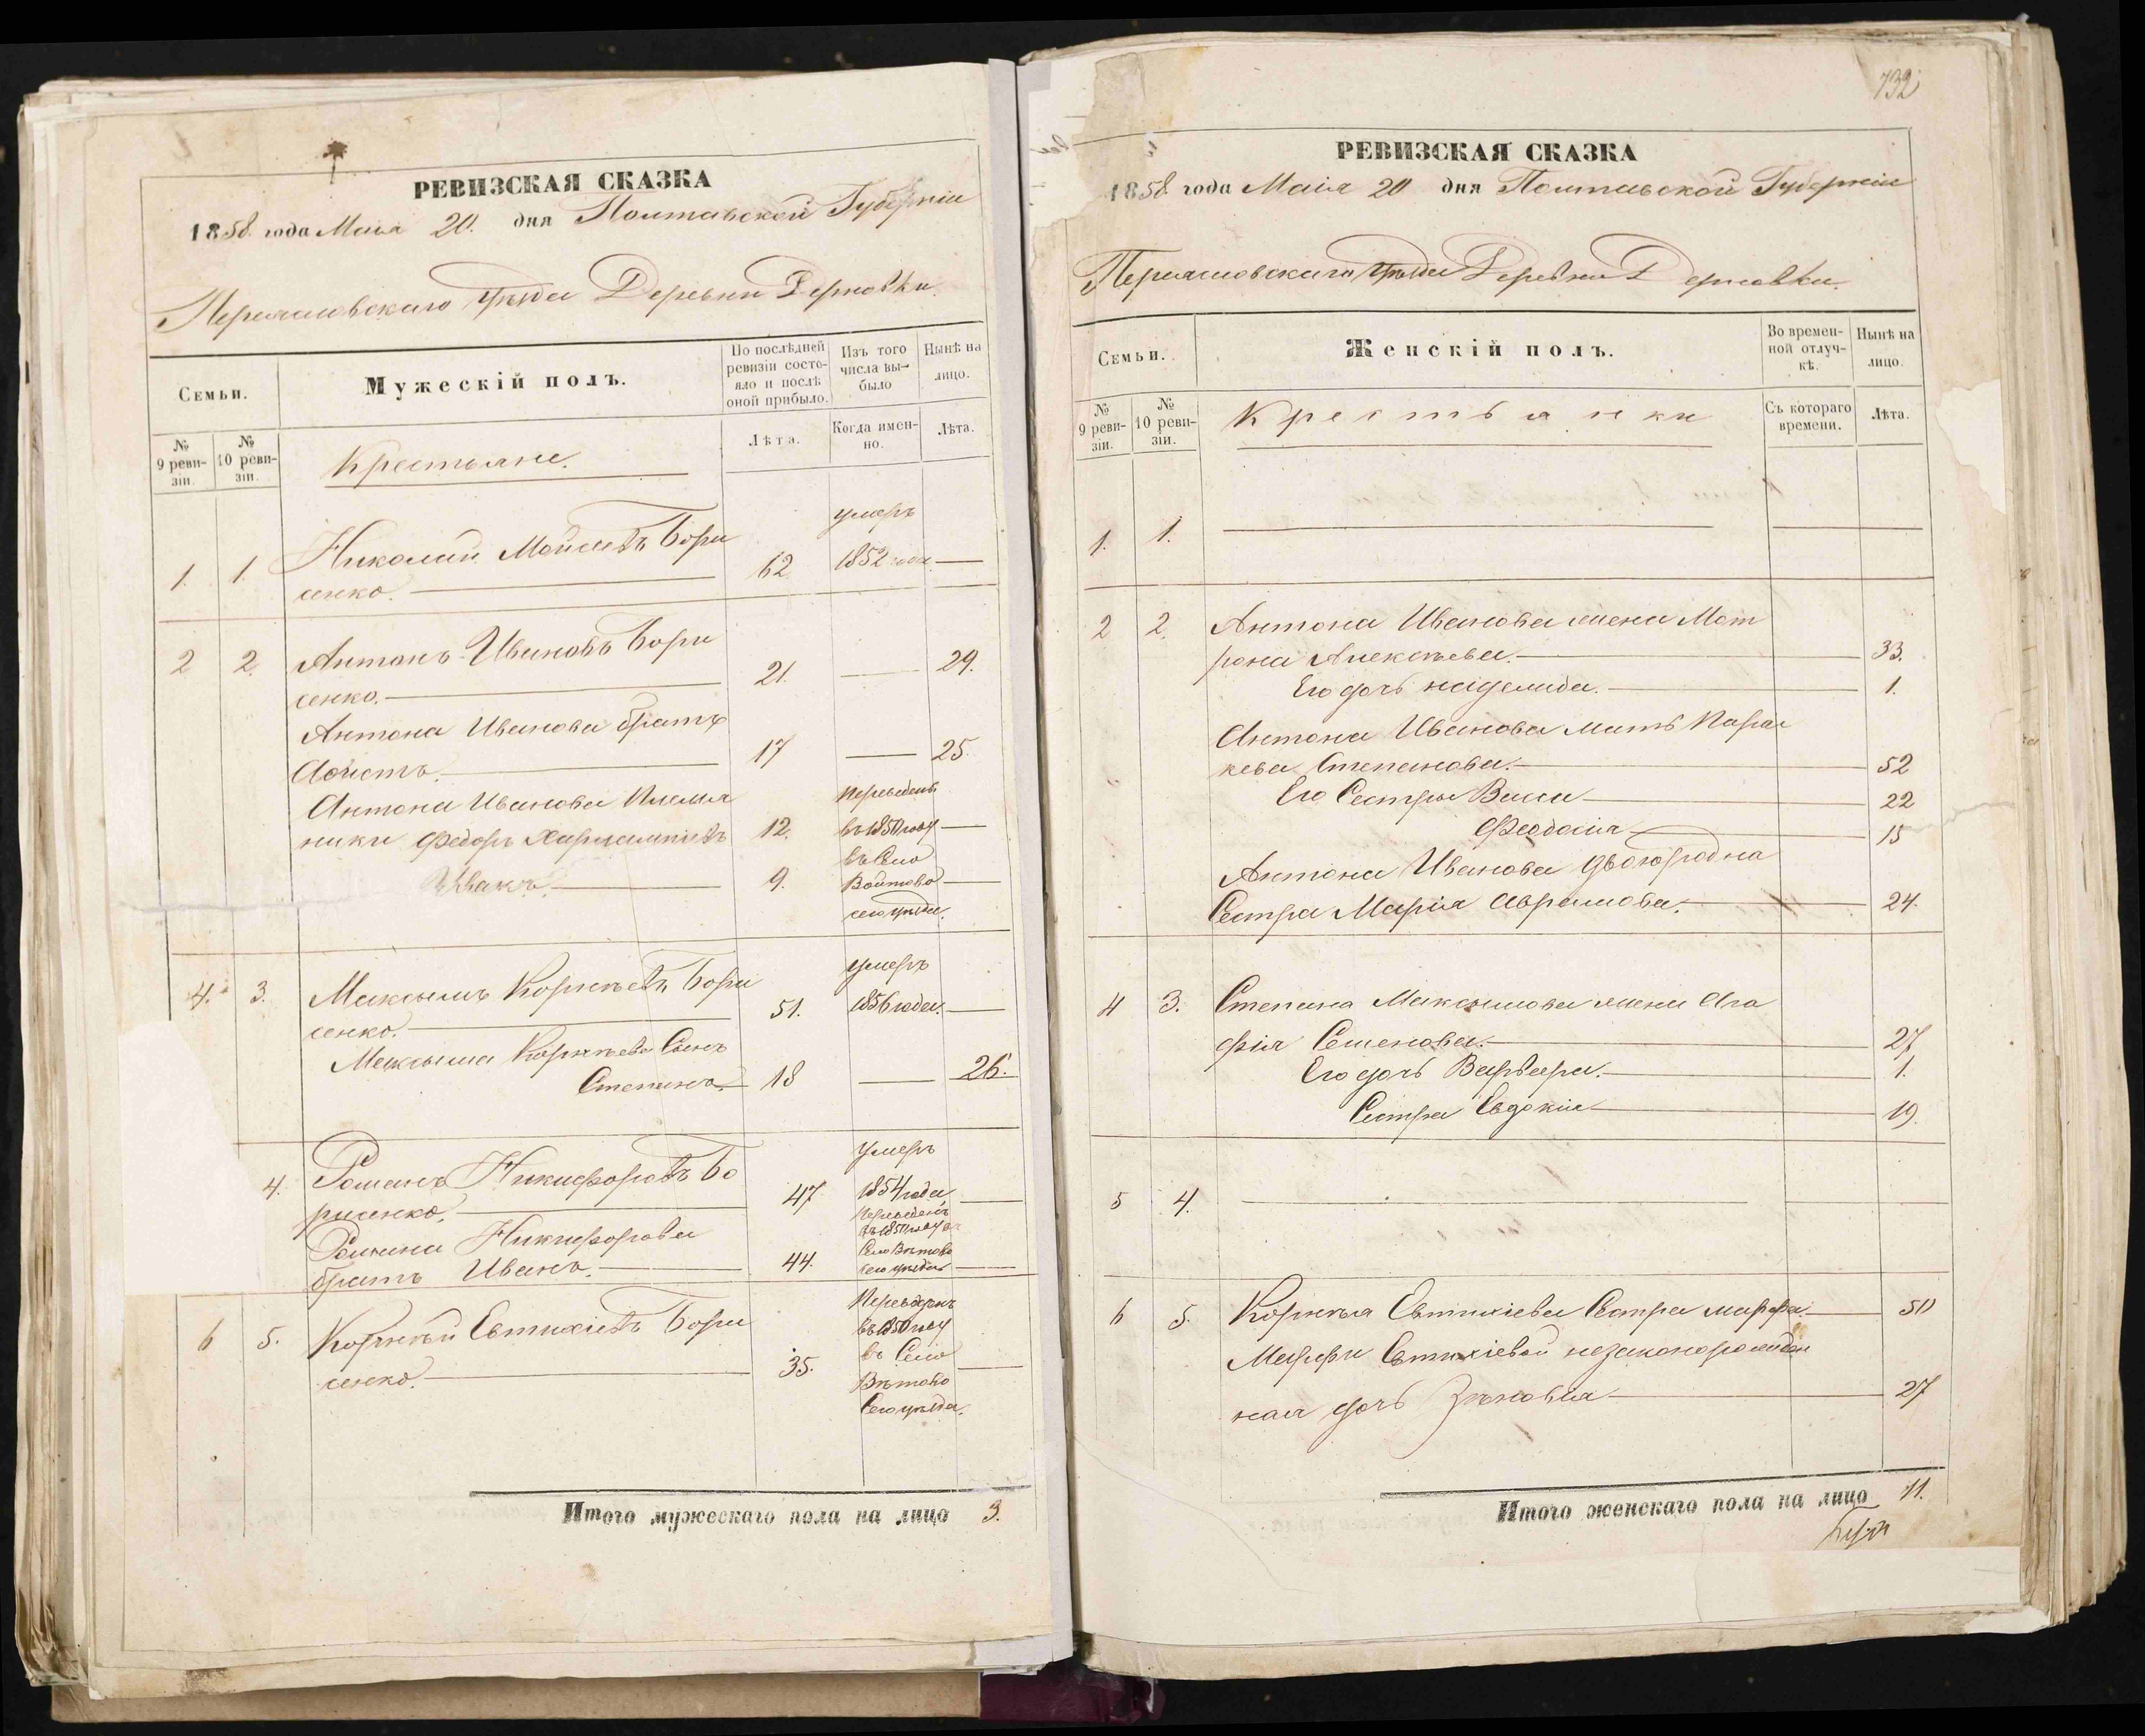 РЕВИЗСКАЯ СКАЗКА
1858 года Маія 20. дня Полтавской Губерніи
Переясловскаго уѣзда Деревни Дерновки
Семьи.
Мужескій полъ.
По послѣдней ревизіи состояло и послѣ оной прибыло.
Изъ того числа выбыло
Нынѣ на лицо.
№ 9 ревизіи.
№ 10 ревизіи.
Крестьяне.
Лѣта.
Когда именно.
Лѣта.
умеръ
1. 1. Николай Мойсеевъ Бори
сенко. 62 1852 года
2 2. Антонъ Ивановъ Бори
сенко. 21. 29.
Антона Иванова братъ
17 25.
Антона Иванова Племян
ники Федоръ Харлампіевъ 12.
Иванъ 9.
Переведены
въ 1850 году
въ Село
Войтово
сего уѣзда.
умеръ
4. 3. Максымъ Корнѣевъ Бори
сенко. 51. 1856 года.
Максыма Корнѣева Сынъ
Степанъ 18 26.
умеръ
4. Романъ Никифоровъ Бо
рисенко. 47 1854 года
Романа Никифорова
братъ Иванъ. 44.
Переведенъ
въ 1850 году въ
Село Вѣтово
сего уѣзда
6 5. Корнѣй Евтихіевъ Бори
сенко. 35.
Переведенъ
въ 1850 году
въ Село
Вѣтово
Сего уѣзда.
Итого мужескаго пола на лицо 3.
732
РЕВИЗСКАЯ СКАЗКА
1858 года Маія 20 дня Полтавской Губерніи
Переясловскаго уѣзда Деревни Дерновки.
Семьи.
Женскій полъ.
Во временной отлучкѣ.
Нынѣ на лицо.
№ 9 ревизіи.
№ 10 ревизіи.
Крестьянки
Съ котораго времени.
Лѣта.
1. 1.
2 2. Антона Иванова жена Мот
рона Алексѣева. 33.
Его дочь 1.
Антона Иванова мать Парас
кева Степанова. 52
Его Сестры Васса 22
Феодосія 15
Антона Иванова двоюродна
Сестра Марія Аврамова. 24.
4 3. Степана Максимова жена Ага
фія Семенова. 27
Его дочь Варвара. 1.
Сестра Евдокія 19
5 4.
6 5. Корнѣя Евтихіева Сестра Марфа 50
Марфы Евтихіевой незаконорожден
ная дочь Зѣновія 27
Итого женскаго пола на лицо 11.